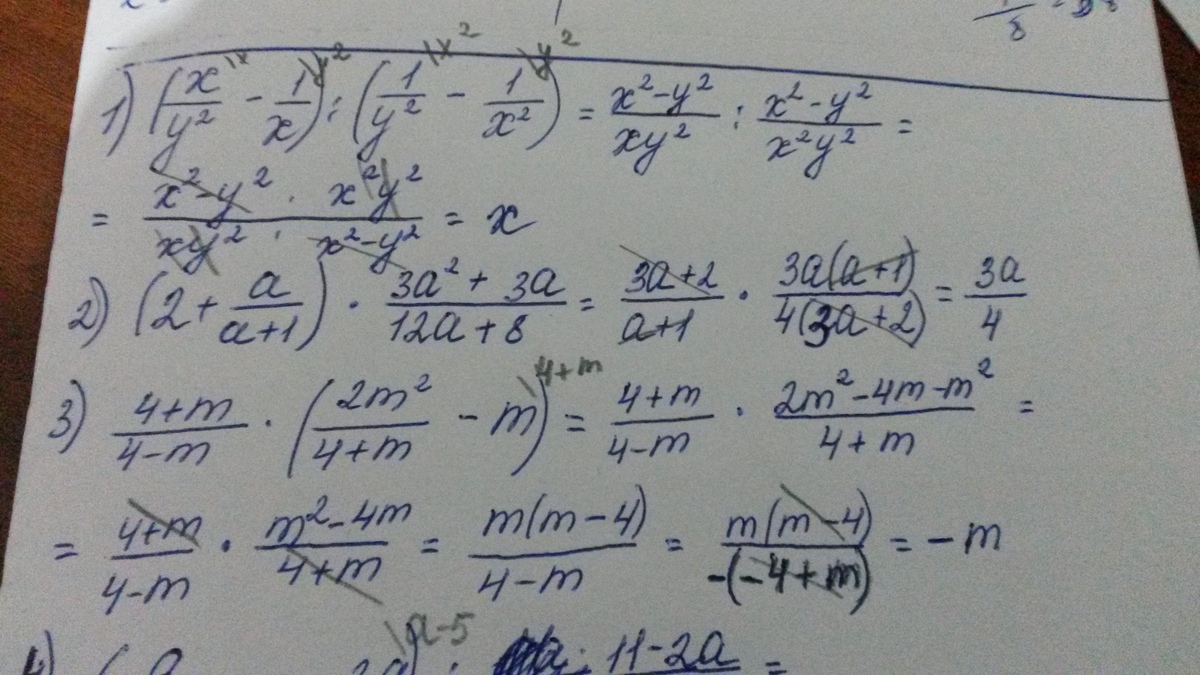 1/8
1) (x/y² \x − 1/x \y²) : (1/y² \x² − 1/x² \y²) = (x²−y²)/(xy²) : (x²−y²)/(x²y²) =
= (x²−y²)/(xy²) · (x²y²)/(x²−y²) = x
2) (2 + a/(a+1)) · (3a² + 3a)/(12a + 8) = (3a+2)/(a+1) · 3a(a+1)/4(3a+2) = 3a/4
3) (4+m)/(4−m) · (2m²/(4+m) − m \4+m) = (4+m)/(4−m) · (2m²−4m−m²)/(4+m) =
= (4+m)/(4−m) · (m²−4m)/(4+m) = m(m−4)/(4−m) = m(m−4)/−(−4+m) = −m
4) (a \a−5 : 11−2a =